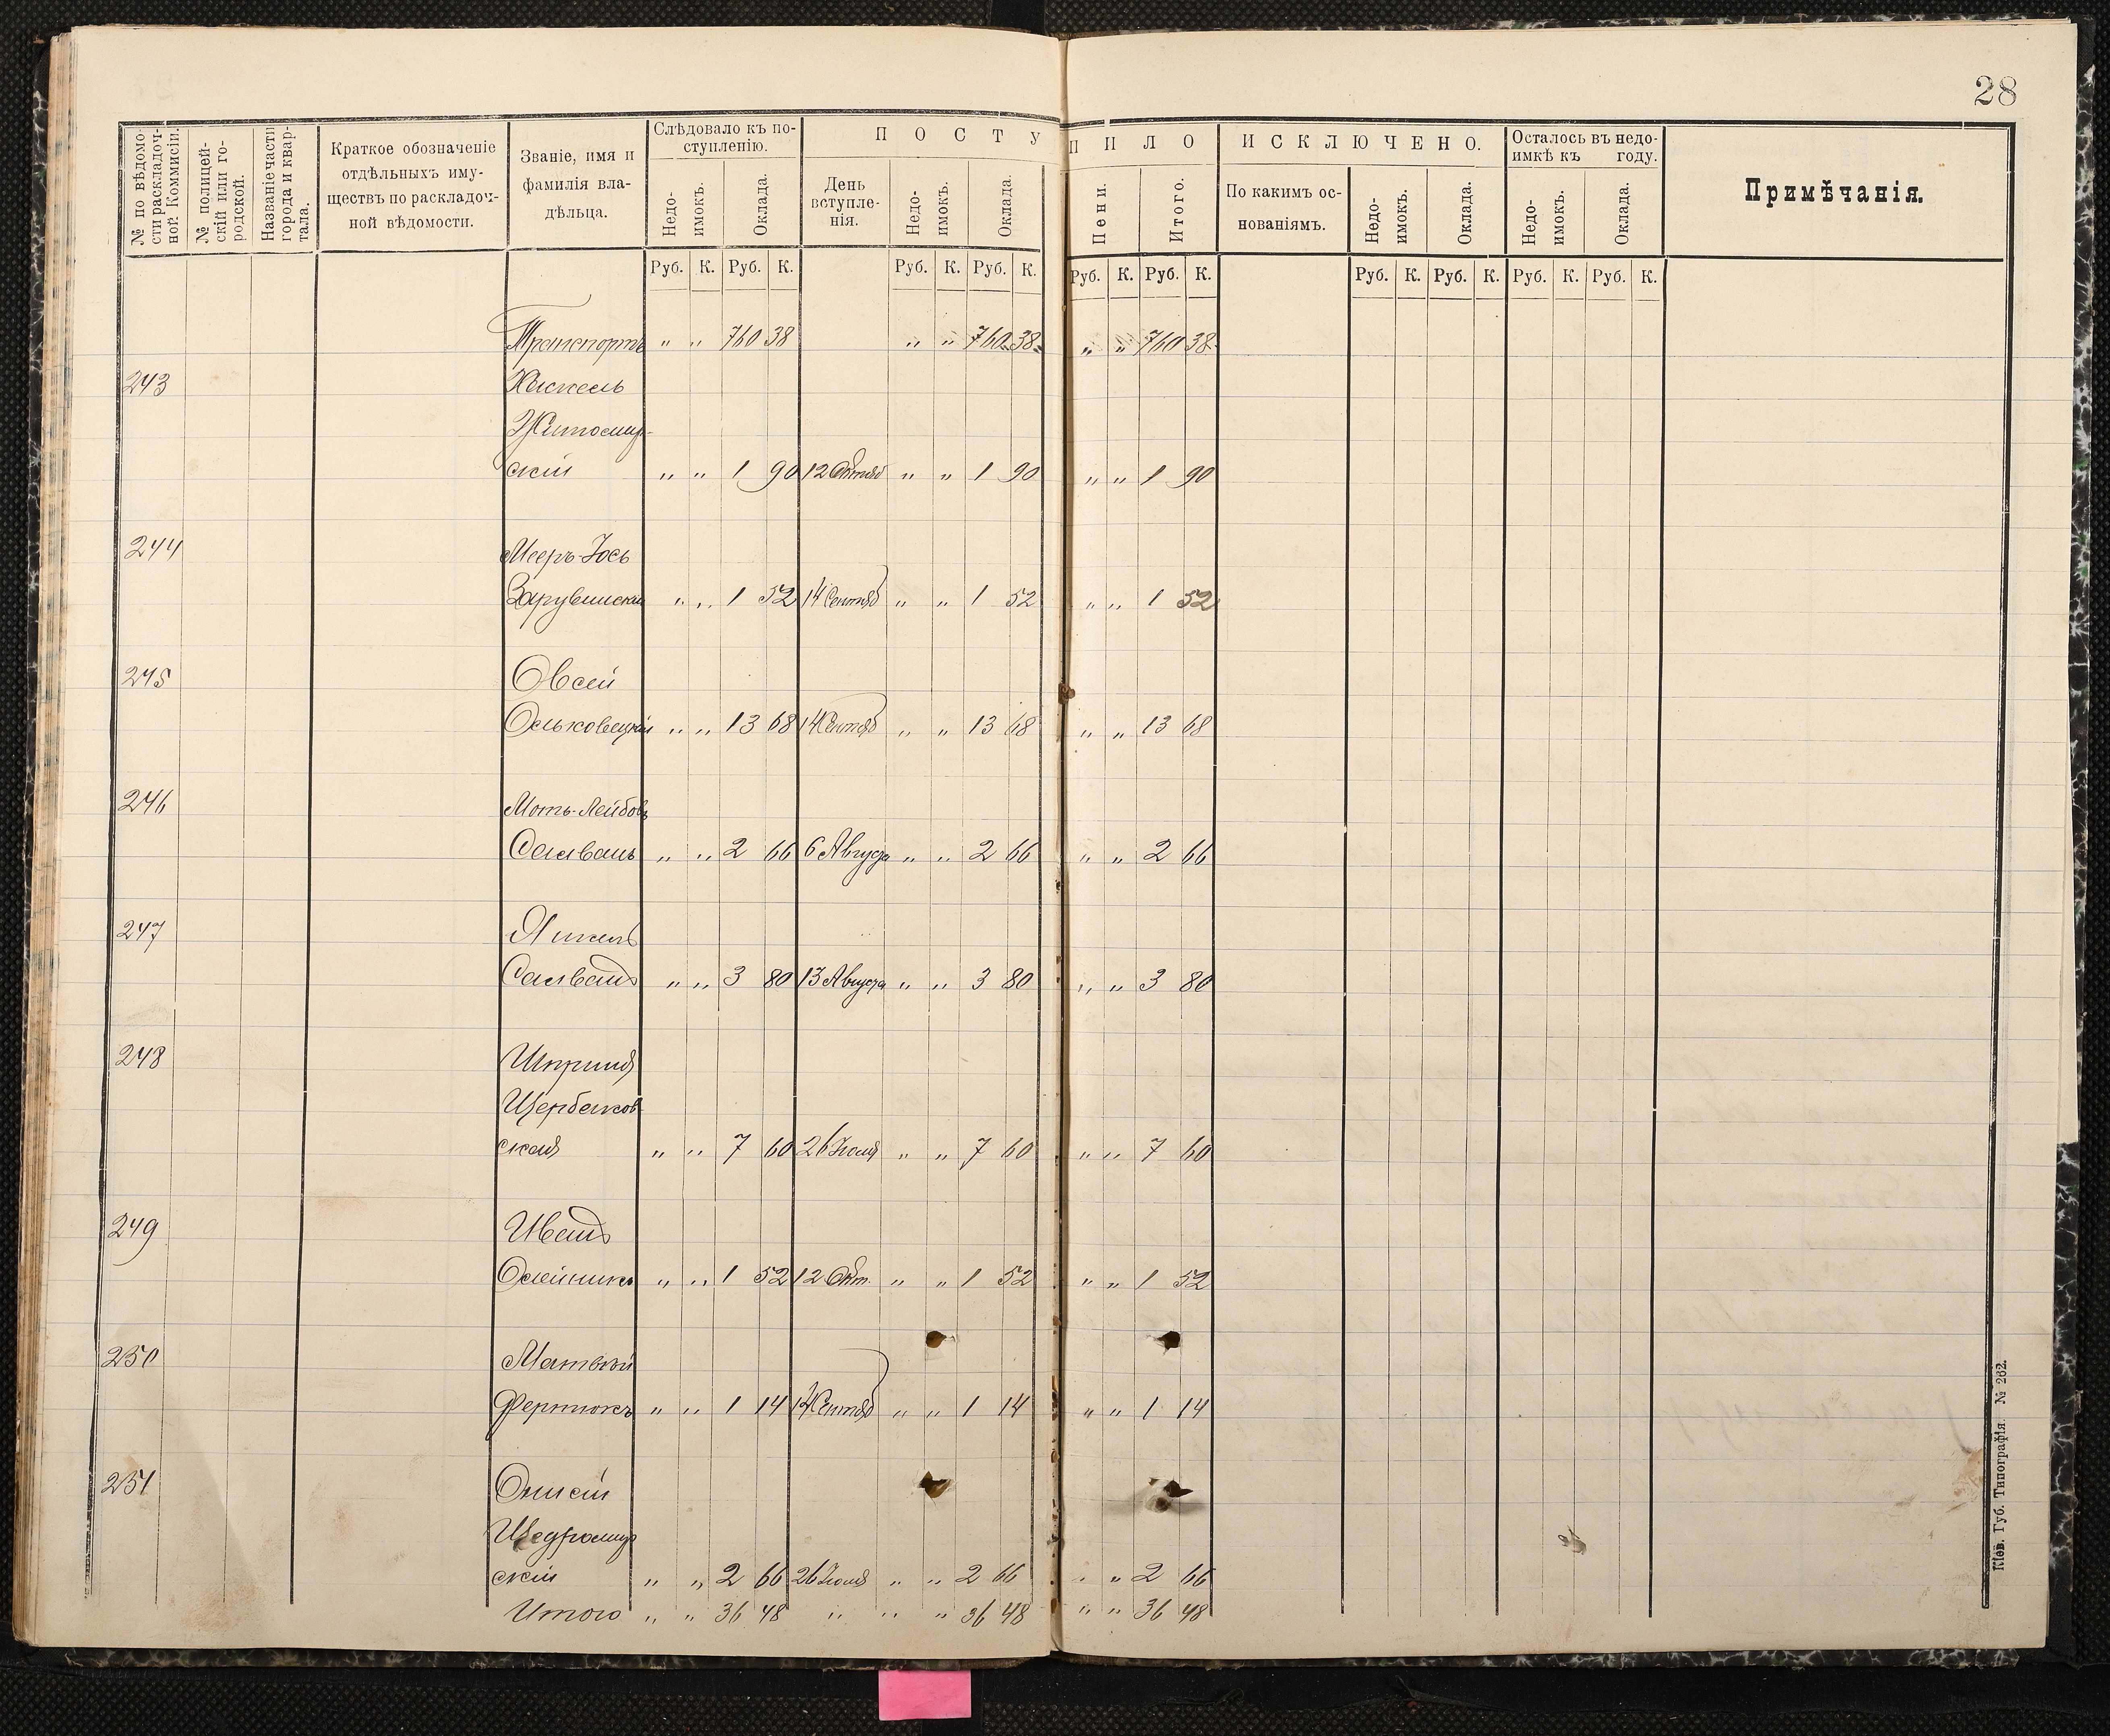 28
№ по вѣдомости раскладочной Коммисіи.
№ полицейскій или городской.
Названіе части города и квартала.
Краткое обозначеніе отдѣльныхъ имуществъ по раскладочной вѣдомости.
Званіе, имя и фамилія владѣльца.
Слѣдовало къ поступленію.
Недоимокъ.
Оклада.
ПОСТУПИЛО
День вступленія.
Недоимокъ.
Оклада.
Пени.
Итого.
ИСКЛЮЧЕНО.
По какимъ основаніямъ.
Недоимокъ.
Оклада.
Осталось въ недоимкѣ къ году.
Недоимокъ.
Оклада.
Примѣчанія.
Руб. К. Руб. К. Руб. К. Руб. К. Руб. К. Руб. К. Руб. К. Руб. К. Руб. К. Руб. К.
Транспортъ " " 760 38 " " 760 38 " " 760 38
243 Хаскель
Житомир-
скій " " 1 90 12 Октяб " " 1 90 " " 1 90
244 Мееръ-Іось
" " 1 52 14 Сентяб " " 1 52 " " 1 52
245 Овсей
Ольковецкій " " 13 68 14 Сентяб " " 13 68 " " 13 68
246 Моть-Лейбовъ
Салганъ " " 2 66 6 Августа " " 2 66 " " 2 66
247
" " 3 80 13 Августа " " 3 80 " " 3 80
248 Шпринця
Щербаков
ская " " 7 60 26 Іюля " " 7 60 " " 7 60
249 Иванъ
Олейникъ " " 1 52 12 Окт. " " 1 52 " " 1 52
250 Матвѣй
Фертюкъ " " 1 14 14 Сентяб " " 1 14 " " 1 14
251 Онисій
Щедромир
скій " " 2 66 26 Іюля " " 2 66 " " 2 66
Итого " " 36 48 " " " 36 48 " " 36 48
Кіев. Губ. Типографія. № 262.